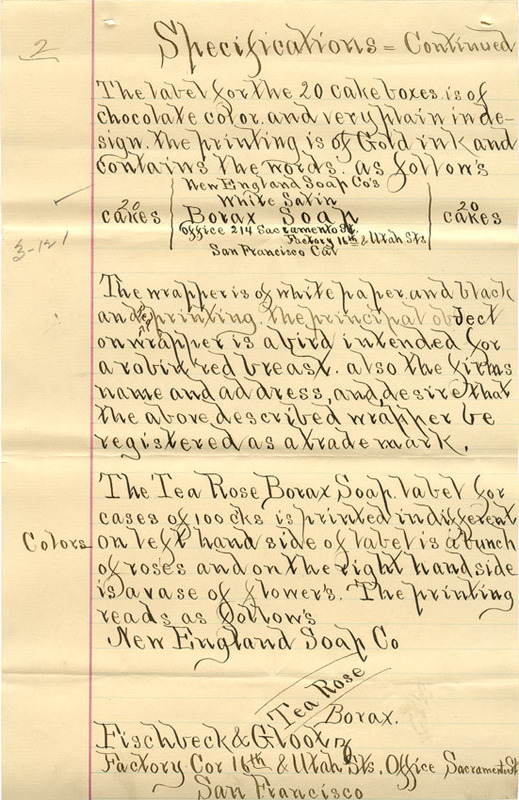 2
Specifications = Continued
The label for the 20 cake boxes. is of
chocolate color. and very plain in de-
sign. the printing is of Gold ink and
contains the words. as follow's
New England Soap Co's
White Satin
20 cakes Borax Soap 20 cakes
Office 214 Sacramento St.
Factory 16th & Utah Sts
San Francisco Cal
3-12
The wrapper is of white paper and black
and red printing. the principal object
on wrapper is a bird intended for
a robin red breast. also the firms
name and address, and desire that
the above described wrapper be
registered as a trade mark.
The Tea Rose Borax Soap label for
cases of 100 cks is printed in different
Colors on left hand side of label is a bunch
of roses and on the right hand side
is a vase of flower's. The printing
reads as follow's
New England Soap Co
Tea Rose
Borax.
Fischbeck & Glootz
Factory Cor 16th & Utah Sts. Office Sacramento St
San Francisco